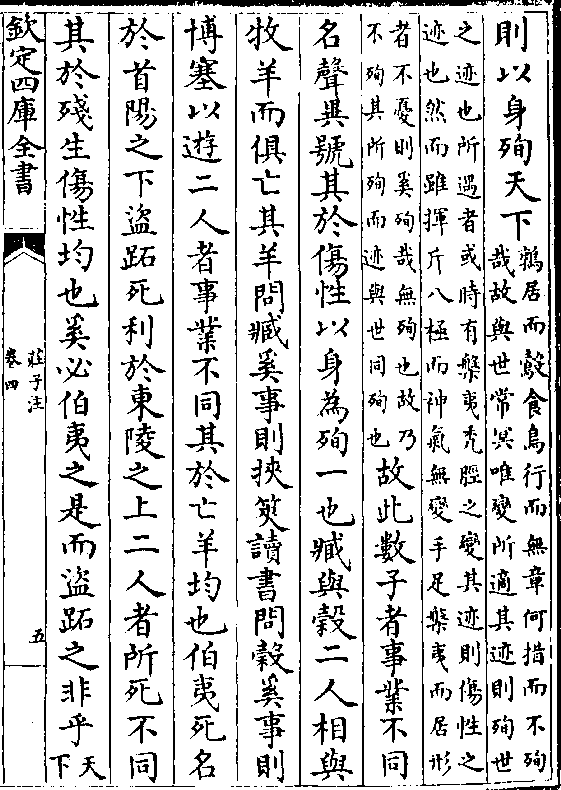 則以身殉天下
鶉居而鷇食鳥行而無章何措而不殉
哉故與世常冥唯變所適其迹則殉世
之迹也所遇者或時有槃夷禿脛之變其迹則傷性之
迹也然而雖揮斥八極而神氣無變手足槃夷而居形
者不憂則奚殉哉無殉也故乃
不殉其所殉而迹與世同殉也
故此數子者事業不同
名聲異號其於傷性以身為殉一也臧與穀二人相與
牧羊而俱亡其羊問臧奚事則挾筴讀書問穀奚事則
博塞以遊二人者事業不同其於亡羊均也伯夷死名
於首陽之下盜跖死利於東陵之上二人者所死不同
其於殘生傷性均也奚必伯夷之是而盜跖之非乎
天
下
欽定四庫全書
莊子注
卷四
五